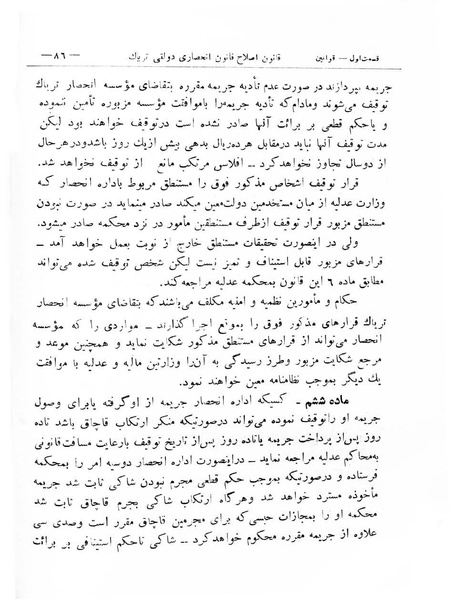 قسمت اول — قوانین قانون اصلاح قانون انحصاری دولتی تریاك —۸۶—
جریمه بپردازند در صورت عدم تأدیه جریمه مقرره بتقاضای مؤسسه انحصار تریاك
توقیف می‌شوند ومادام‌که تأدیه جریمه‌را باموافقت مؤسسه مزبوره تأمین ننموده
و یاحکم قطعی بر برائت آنها صادر نشده است درتوقیف خواهند بود لیکن
مدت توقیف آنها نباید درمقابل هرده‌ریال بدهی بیش ازیك روز باشدودرهرحال
از دوسال تجاوز نخواهدکرد – افلاس مرتکب مانع از توقیف نخواهد شد.
قرار توقیف اشخاص مذکور فوق را مستنطق مربوط باداره انحصار که
وزارت عدلیه از میان مستخدمین دولت‌معین میکند صادر مینماید در صورت نبودن
مستنطق مزبور قرار توقیف ازطرف مستنطقین مأمور در نزد محکمه صادر میشود.
ولی در اینصورت تحقیقات مستنطق خارج از نوبت بعمل خواهد آمد –
قرارهای مزبور قابل استیناف و تمیز نیست لیکن شخص توقیف شده می‌تواند
مطابق ماده ۶ این قانون بمحکمه عدلیه مراجعه‌کند.
حکام و مأمورین نظمیه و امنیه مکلف می‌باشندکه بتقاضای مؤسسه انحصار
تریاك قرارهای مذکور فوق را بموقع اجرا گذارند – مواردی را که مؤسسه
انحصار می‌تواند از قرارهای مستنطق مذکور شکایت نماید و همچنین موعد و
مرجع شکایت مزبور وطرز رسیدگی به آن‌را وزارتین مالیه و عدلیه با موافقت
یك دیگر بموجب نظامنامه معین خواهند نمود.
ماده ششم – کسیکه اداره انحصار جریمه از اوگرفته یابرای وصول
جریمه او راتوقیف نموده می‌تواند درصورتیکه منکر ارتکاب قاچاق باشد تاده
روز پس‌از پرداخت جریمه یاتاده روز پس‌از تاریخ توقیف بارعایت مسافت‌قانونی
به‌محاکم عدلیه مراجعه نماید – دراینصورت اداره انحصار دوسیه امر را بمحکمه
فرستاده و درصورتیکه بموجب حکم قطعی مجرم نبودن شاکی ثابت شد جریمه
مأخوذه مسترد خواهد شد وهرگاه ارتکاب شاکی بجرم قاچاق ثابت شد
محکمه او را بمجازات حبسی‌که برای مجرمین قاچاق مقرر است وصدی سی
علاوه از جریمه مقرره محکوم خواهدکرد – شاکی تاحکم استینافی بر برائت